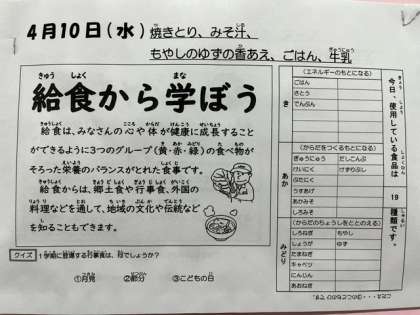 4月10日(水) 焼きとり、みそ汁、
もやしのゆずの香あえ、ごはん、牛乳
給食から学ぼう
給食は、みなさんの心や体が健康に成長すること
ができるように3つのグループ(黄・赤・緑)の食べ物が
そろった栄養のバランスがとれた食事です。
給食からは、郷土食や行事食、外国の
料理などを通して、地域の文化や伝統など
を知ることもできます。
クイズ 1学期に登場する行事食は、何でしょうか?
①月見 ②節分 ③こどもの日
き
(エネルギーのもとになる)
ごはん
さとう
でんぷん
あか
(からだをつくるもとになる)
ぎゅうにゅう だしこんぶ
けいにく けずりぶし
ぶたにく
うすあげ
あかみそ
しろみそ
みどり
(からだのちょうしをととのえる)
しろねぎ もやし
しょうが ゆず
たまねぎ
キャベツ
にんじん
あおねぎ
今日、使用している食品は
19
種類です。